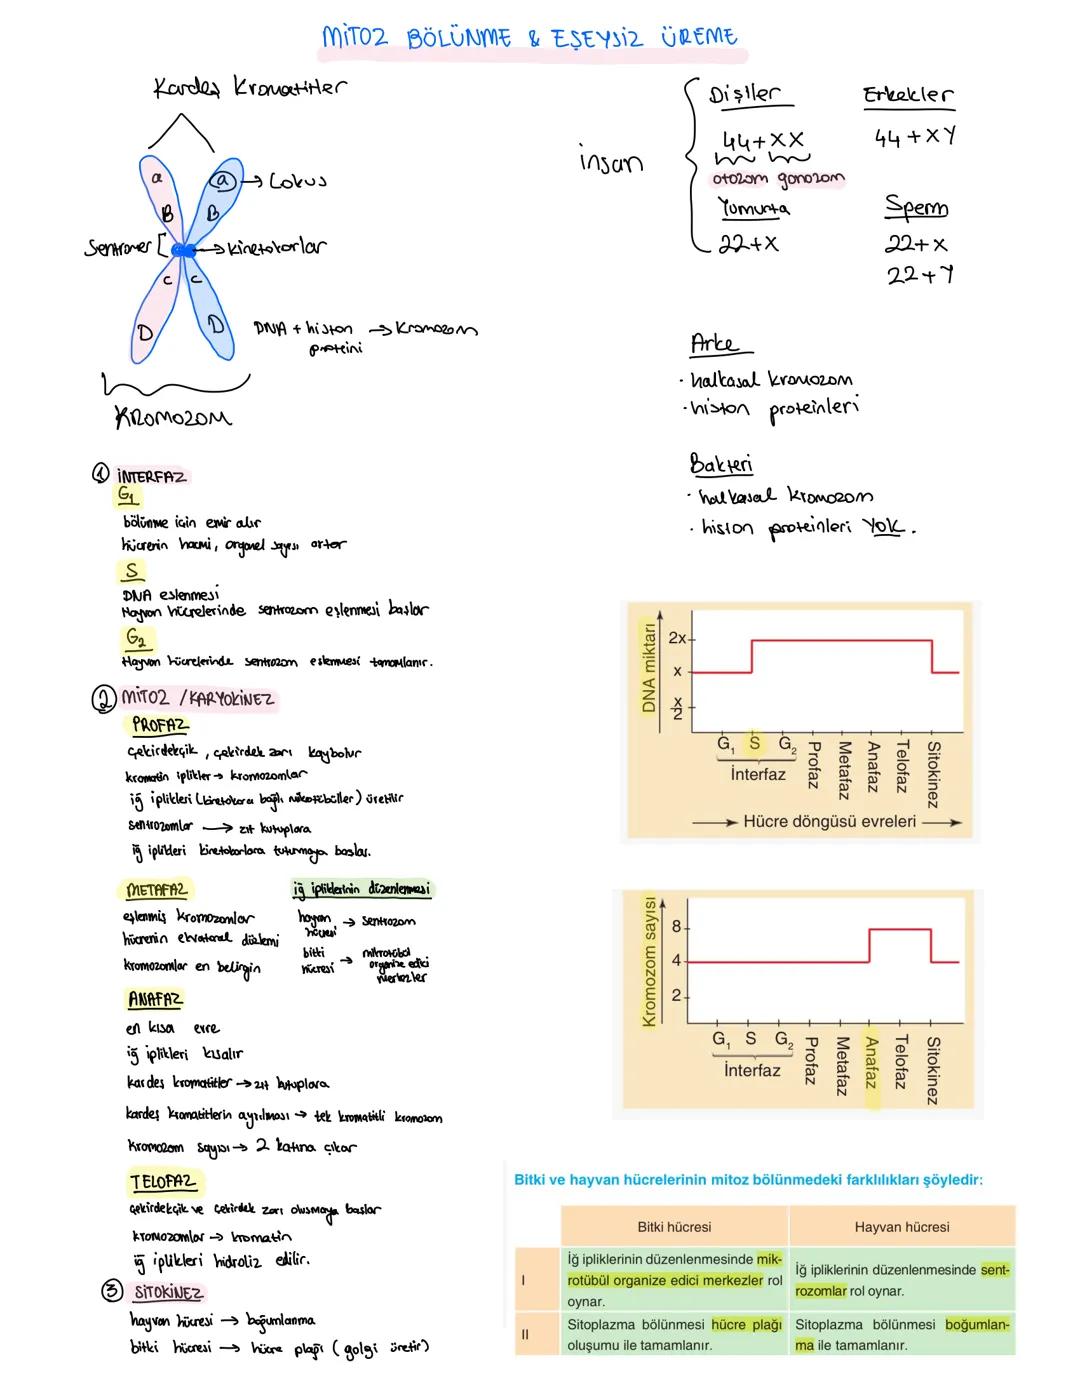 MİTOZ BÖLÜNME & EŞEYSİZ ÜREME
Kardeş Kromatitler
a
a → Lokus
B
B
Sentromer
→ kinetokorlar
C
C
D
D
DNA + histon proteini → Kromozom
KROMOZOM
insan
Dişiler
44+XX
otozom gonozom
Yumurta
22+X
Erkekler
44+XY
Sperm
22+X
22+Y
Arke
· halkasal kromozom
· histon proteinleri
Bakteri
· halkasal kromozom
· histon proteinleri YOK.
① İNTERFAZ
G1
bölünme için emir alır
hücrenin hacmi, organel sayısı artar
S
DNA eşlenmesi
Hayvan hücrelerinde sentrozom eşlenmesi başlar
G2
Hayvan hücrelerinde sentrozom eşlenmesi tamamlanır.
② MİTOZ / KARYOKİNEZ
PROFAZ
çekirdekçik, çekirdek zarı kaybolur
kromatin iplikler → kromozomlar
iğ iplikleri (kinetokora bağlı mikrotübüller) üretilir
sentrozomlar → zıt kutuplara
iğ iplikleri kinetokorlara tutunmaya başlar.
METAFAZ
eşlenmiş kromozomlar
hücrenin ekvatoral düzlemi
kromozomlar en belirgin
iğ ipliklerinin düzenlenmesi
hayvan hücresi → sentrozom
bitki hücresi → mikrotübül organize edici merkezler
ANAFAZ
en kısa evre
iğ iplikleri kısalır
kardeş kromatitler → zıt kutuplara
kardeş kromatitlerin ayrılması → tek kromatitli kromozom
kromozom sayısı → 2 katına çıkar
TELOFAZ
çekirdekçik ve çekirdek zarı oluşmaya başlar
kromozomlar → kromatin
iğ iplikleri hidroliz edilir.
③ SİTOKİNEZ
hayvan hücresi → boğumlanma
bitki hücresi → hücre plağı (golgi üretir)
DNA miktarı
2x
x
x/2
G1 S G2 Profaz Metafaz Anafaz Telofaz Sitokinez
İnterfaz
Hücre döngüsü evreleri
Kromozom sayısı
8
4
2
G1 S G2 Profaz Metafaz Anafaz Telofaz Sitokinez
İnterfaz
Bitki ve hayvan hücrelerinin mitoz bölünmedeki farklılıkları şöyledir:
Bitki hücresi
Hayvan hücresi
I
İğ ipliklerinin düzenlenmesinde mik-
rotübül organize edici merkezler rol
oynar.
İğ ipliklerinin düzenlenmesinde sent-
rozomlar rol oynar.
II
Sitoplazma bölünmesi hücre plağı
oluşumu ile tamamlanır.
Sitoplazma bölünmesi boğumlan-
ma ile tamamlanır.